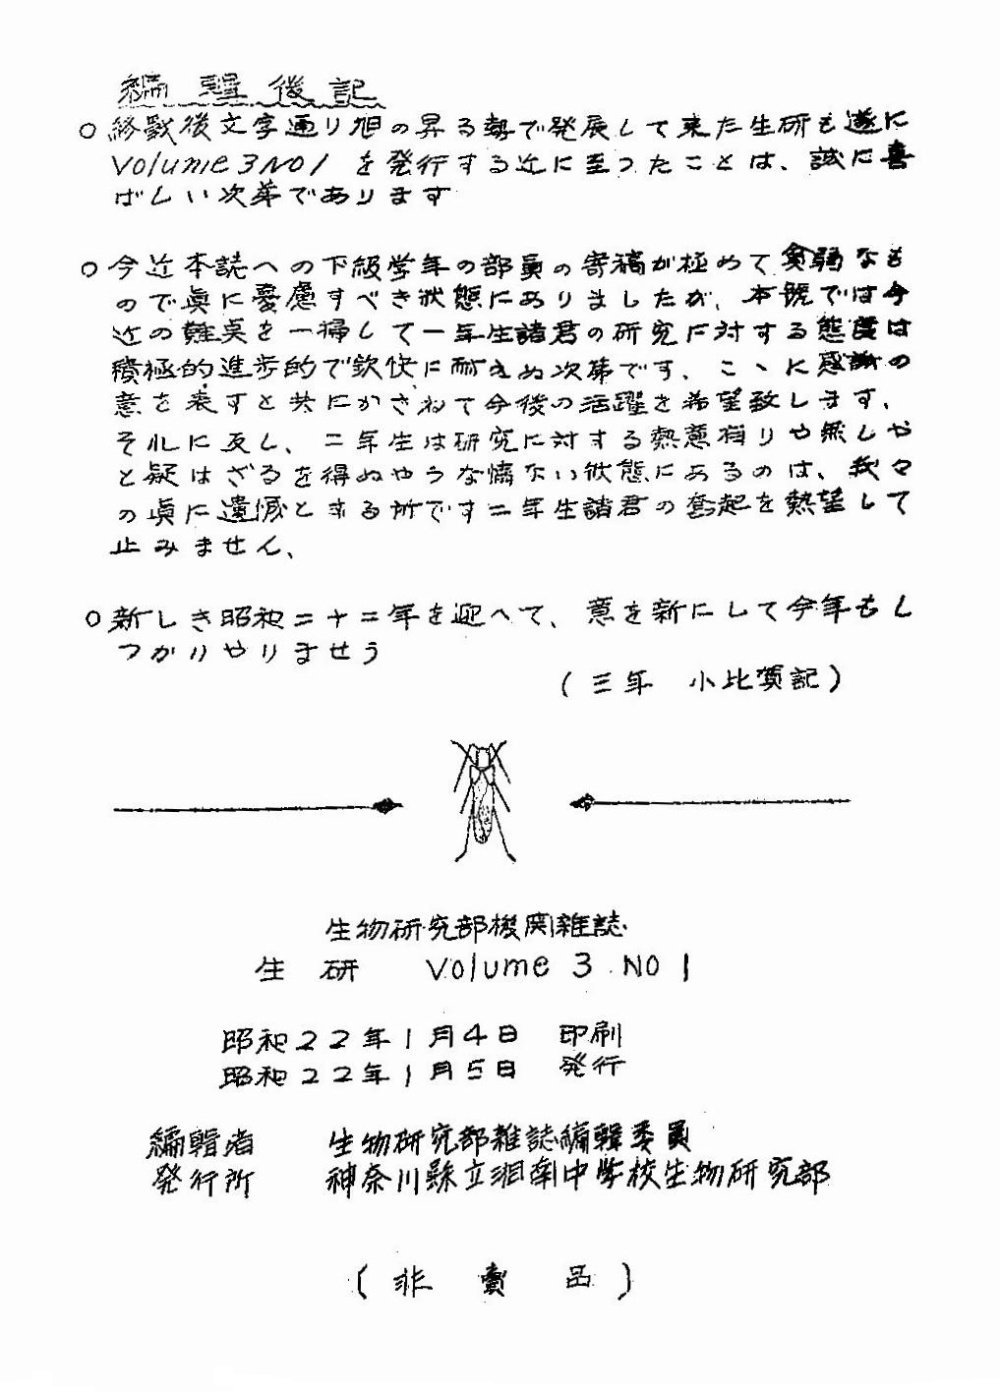 編輯後記
○終戰後文字通り旭の昇る勢で発展して来た生研も遂に
Volume 3 NO 1 を発行する迄に至つたことは、誠に喜
ばしい次第であります
○今迄本誌への下級学年の部員の寄稿が極めて貧弱なも
ので眞に憂慮すべき状態にありましたが、本號では今
迄の難点を一掃して一年生諸君の研究に対する態度は
積極的進歩的で欽快に耐えぬ次第です、こゝに感謝の
意を表すと共にかさねて今後の活躍を希望致します、
それに反し、二年生は研究に対する熱意有りや無しや
と疑はざるを得ぬやうな情ない状態にあるのは、我々
の眞に遺憾とする所です二年生諸君の奮起を熱望して
止みません、
○新しき昭和二十二年を迎へて、意を新にして今年もし
つかりやりませう
(三年 小比賀記)
生物研究部機関雑誌
生研 Volume 3 NO 1
昭和22年1月4日 印刷
昭和22年1月5日 発行
編輯者 生物研究部雑誌編輯委員
発行所 神奈川縣立湘南中学校生物研究部
(非賣品)